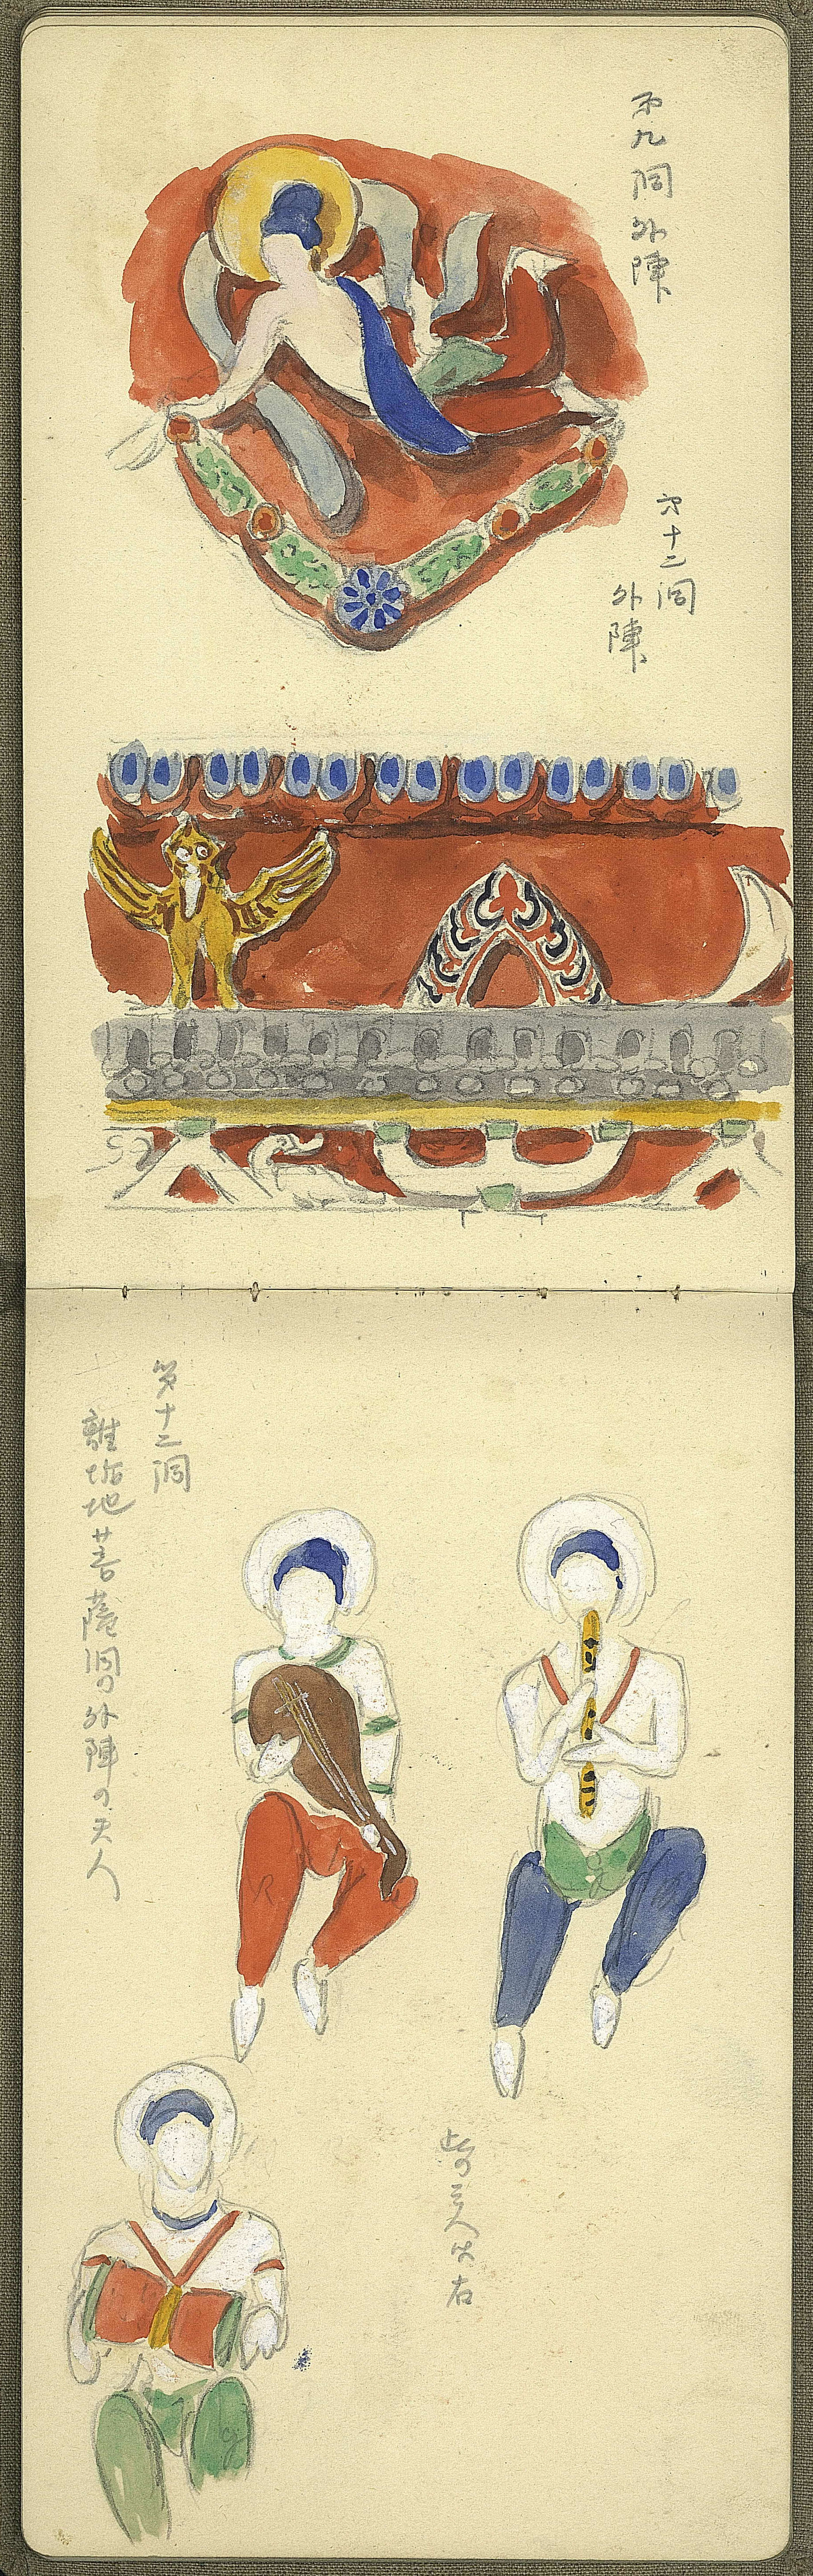 第九洞外陣
第十二洞
外陣
第十二洞
離垢地菩薩洞の外陣の天人
此の三人ハ右
R
R
g